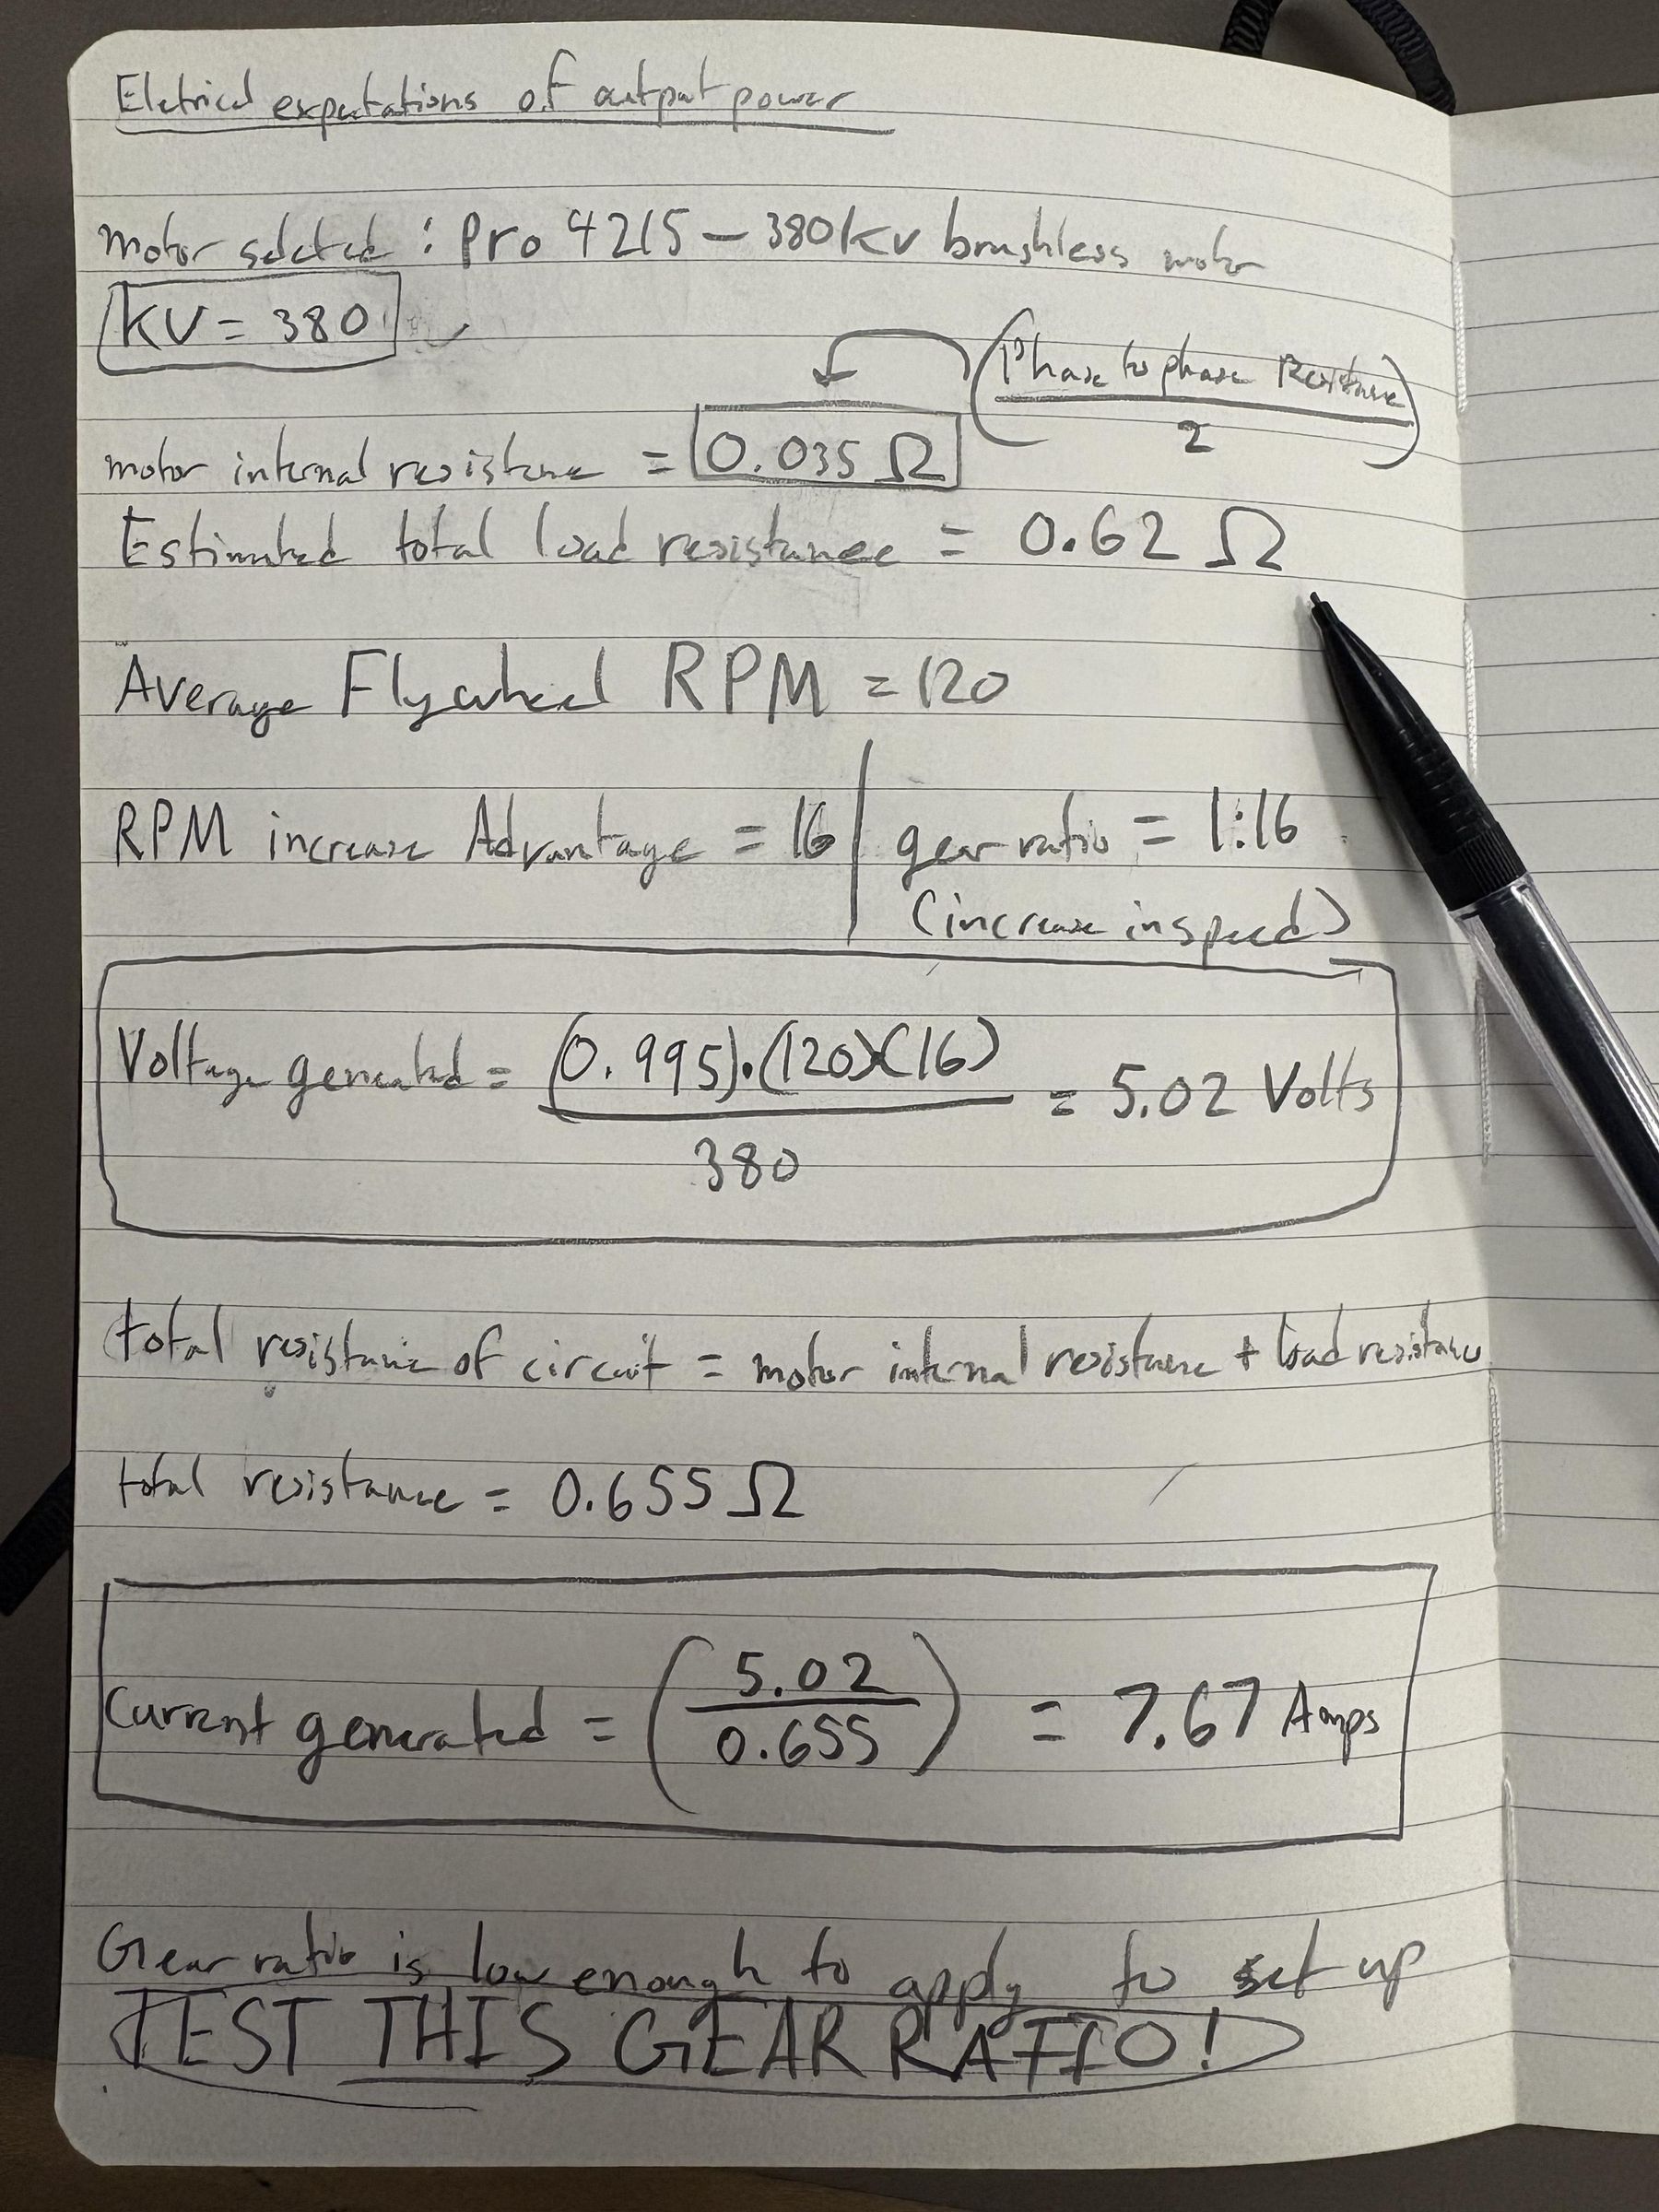 Eletrical expectations of output power
motor selected : Pro 4215 - 380kv brushless motor
KV = 380
(Phase to phase Resistance)
2
motor internal resistance = 0.035 Ω
Estimated total load resistance = 0.62 Ω
Average Flywheel RPM = 120
RPM increase Advantage = 16 | gear ratio = 1:16
(increase in speed)
Voltage generated = (0.995)·(120)(16) = 5.02 Volts
380
total resistance of circuit = motor internal resistance + load resistance
total resistance = 0.655 Ω
Current generated = (5.02 / 0.655) = 7.67 Amps
Gear ratio is low enough to apply to set up
TEST THIS GEAR RATIO!